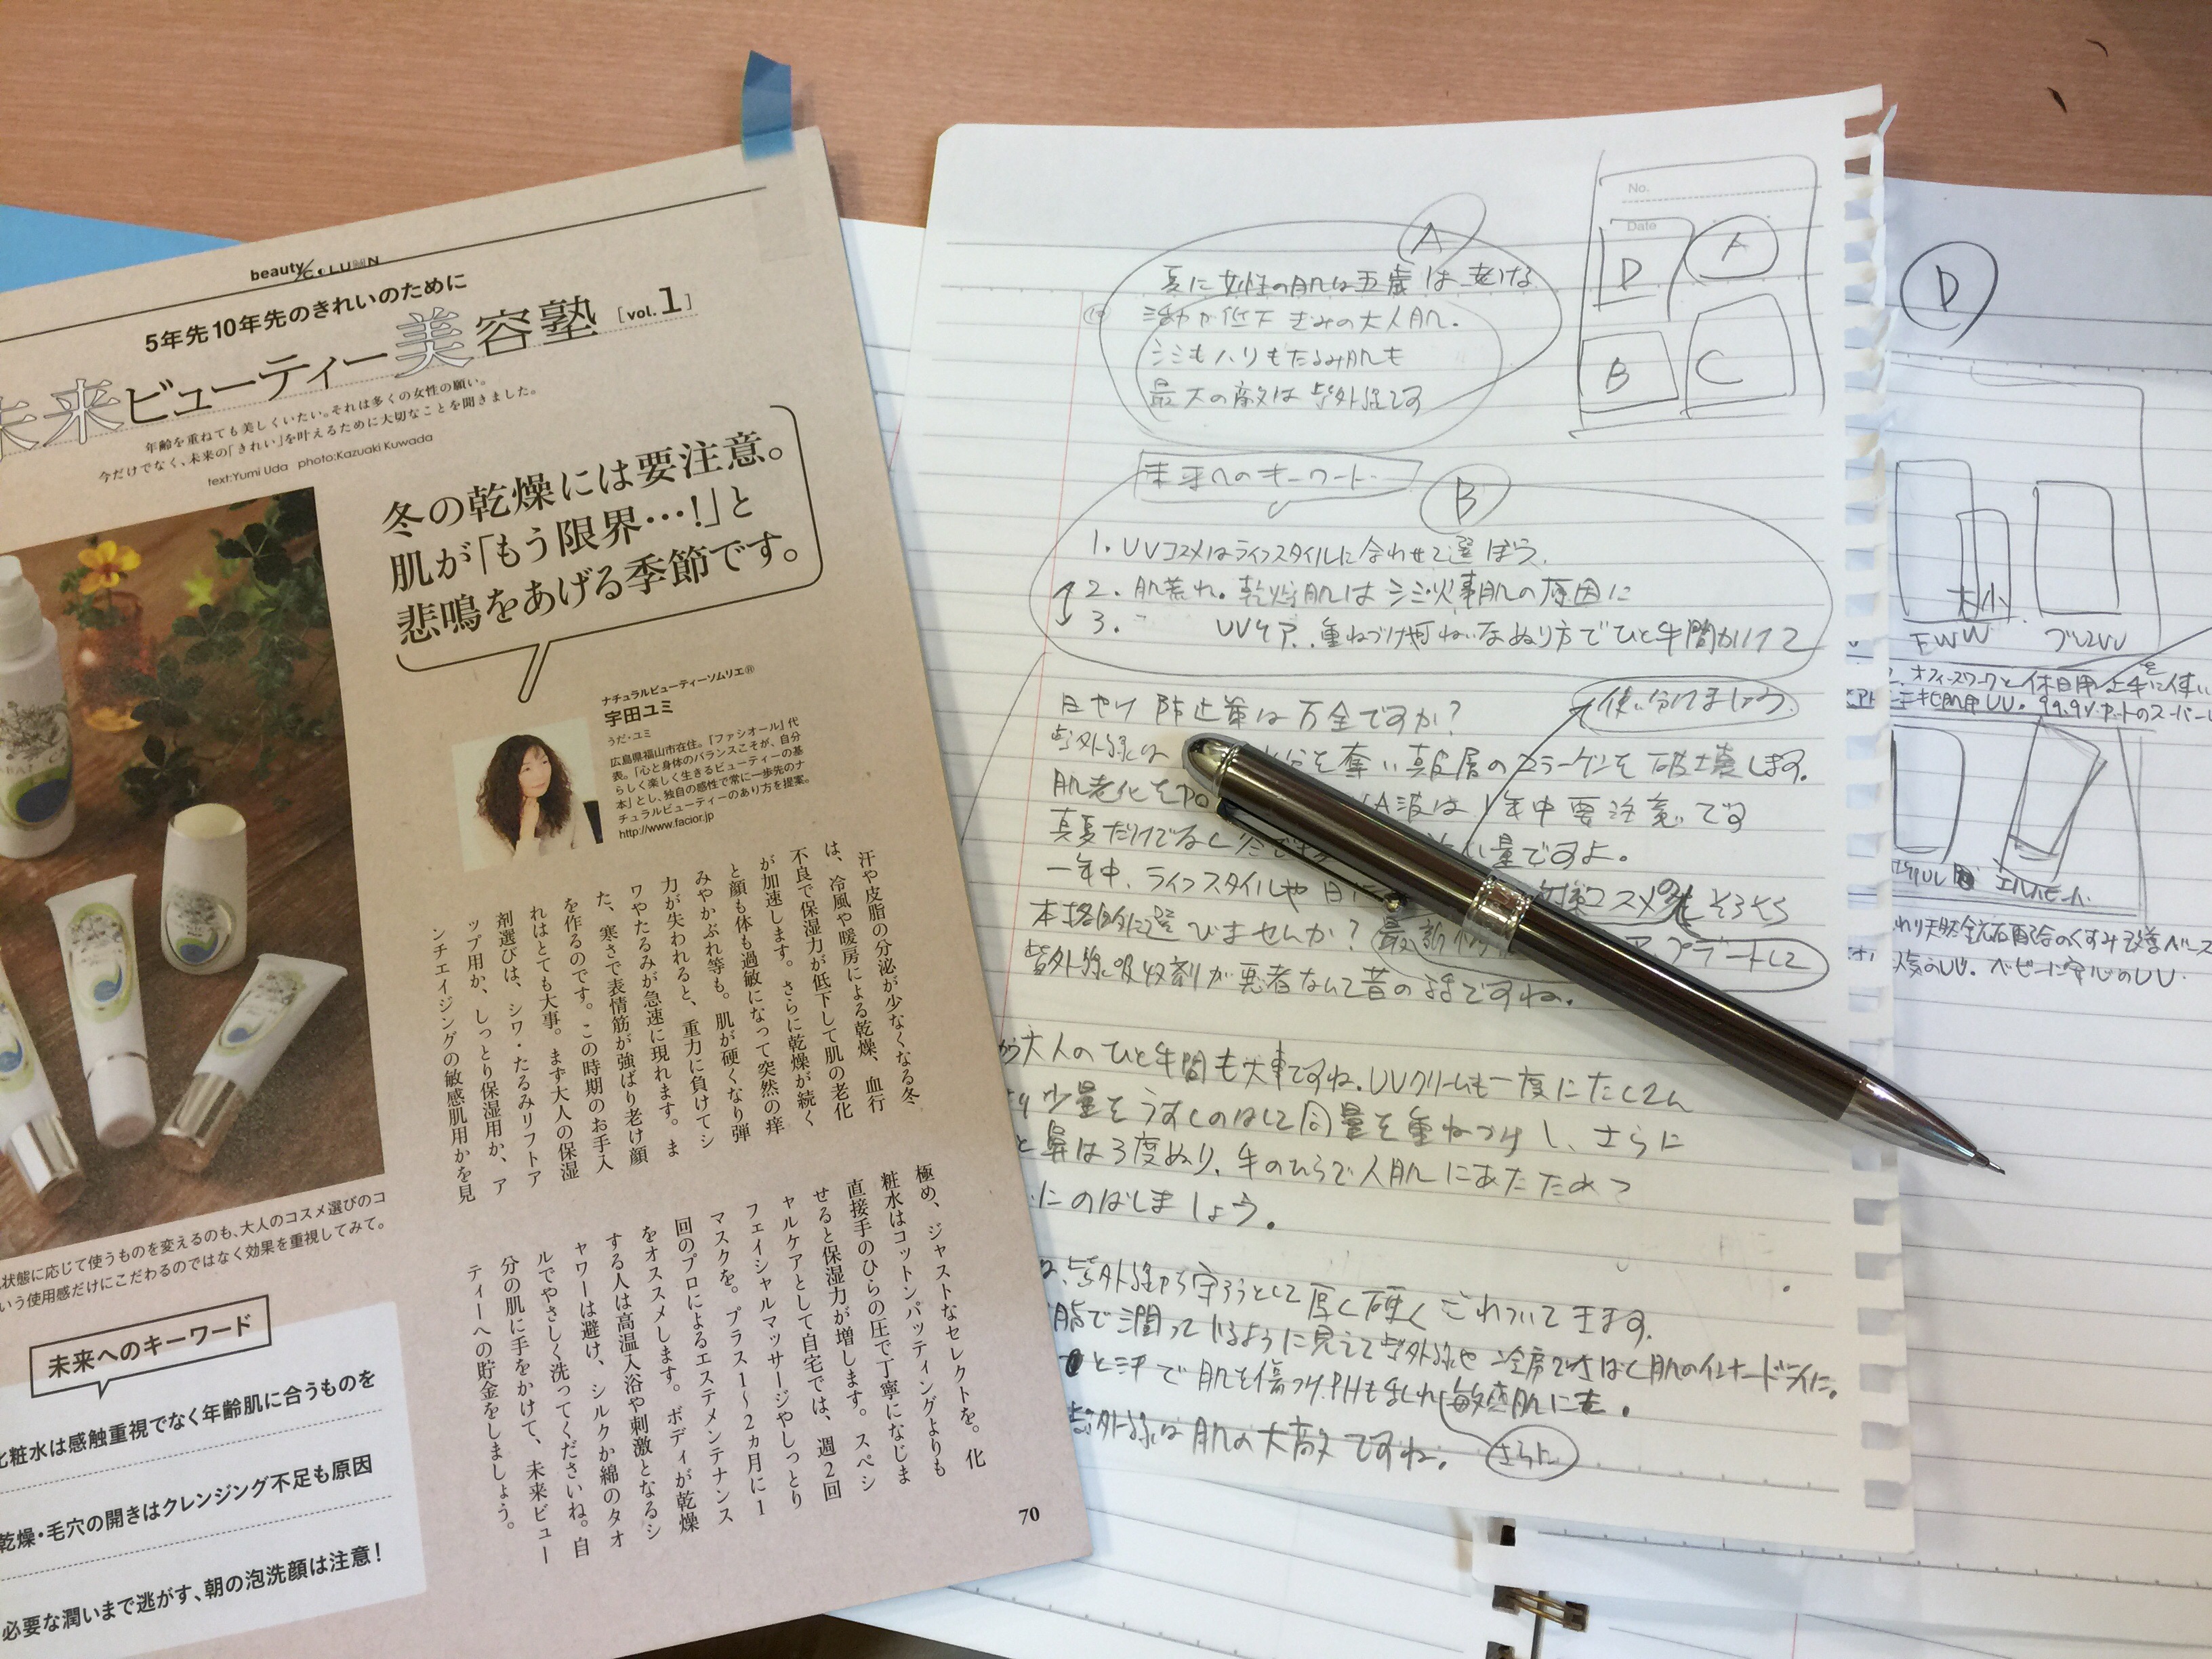 beauty COLUMN
5年先10年先のきれいのために
未来ビューティー美容塾 [vol.1]
年齢を重ねても美しくいたい。それは多くの女性の願い。
今だけでなく、未来の「きれい」を叶えるために大切なことを聞きました。
text:Yumi Uda photo:Kazuaki Kuwada
冬の乾燥には要注意。
肌が「もう限界…!」と
悲鳴をあげる季節です。
ナチュラルビューティーソムリエ®
宇田ユミ
うだ・ユミ
広島県福山市在住。「ファシオール」代
表。「心と身体のバランスこそが、自分
らしく楽しく生きるビューティーの基
本」とし、独自の感性で常に一歩先のナ
チュラルビューティーのあり方を提案。
http://www.facior.jp
汗や皮脂の分泌が少なくなる冬
は、冷風や暖房による乾燥、血行
不良で保湿力が低下して肌の老化
が加速します。さらに乾燥が続く
と顔も体も過敏になって突然の痒
みやかぶれ等も。肌が硬くなり弾
力が失われると、重力に負けてシ
ワやたるみが急速に現れます。ま
た、寒さで表情筋が強ばり老け顔
を作るのです。この時期のお手入
れはとても大事。まず大人の保湿
剤選びは、シワ・たるみリフトア
ップ用か、しっとり保湿用か、ア
ンチエイジングの敏感肌用かを見
極め、ジャストなセレクトを。化
粧水はコットンパッティングよりも
直接手のひらの圧で丁寧になじま
せると保湿力が増します。スペシ
ャルケアとして自宅では、週2回
フェイシャルマッサージやしっとり
マスクを。プラス1〜2ヵ月に1
回のプロによるエステメンテナンス
をオススメします。ボディが乾燥
する人は高温入浴や刺激となるシ
ャワーは避け、シルクか綿のタオ
ルでやさしく洗ってくださいね。自
分の肌に手をかけて、未来ビュー
ティーへの貯金をしましょう。
状態に応じて使うものを変えるのも、大人のコスメ選びのコ
いう使用感だけにこだわるのではなく効果を重視してみて。
未来へのキーワード
化粧水は感触重視でなく年齢肌に合うものを
乾燥・毛穴の開きはクレンジング不足も原因
必要な潤いまで逃がす、朝の泡洗顔は注意!
70
A
夏に女性の肌は五歳は老ける
活力が低下ぎみの大人肌。
シミもハリもたるみ肌も
最大の敵は紫外線です
No.
Date
D A
B C
未来へのキーワード
B
1. UVコスメはライフスタイルに合わせて選ぼう.
2. 肌荒れ。乾燥肌はシミ・火事肌の原因に
3. UVケア、重ねづけ ていねいなぬり方でひと手間かけて
日やけ防止策は万全ですか?
使い分けましょう
紫外線は 分を奪い真皮層のコラーゲンを破壊します。
肌老化を A波は1年中要注意です
真夏だけでなく 量ですよ。
一年中、ライフスタイルや コスメ そろそろ
本格的に選びませんか? 最新 アップデートして
紫外線吸収剤が悪者なんて昔の話ですね。
大人のひと手間も大事ですね。UVクリームも一度にたくさん
少量をうすくのばして同量を重ねづけし、さらに
と鼻は3度ぬり、手のひらで人肌にあたためて
にのばしましょう。
紫外線から守ろうとして厚く硬くごわついてきます。
脂で潤っているように見えて紫外線や冷房でさばく肌のインナードライに。
と汗で肌を傷つけ、PHも乱れ敏感肌に
紫外線は肌の大敵ですね。
さらに
D
大 小
FWW
2. オフィスワークと休日用 上手に使い